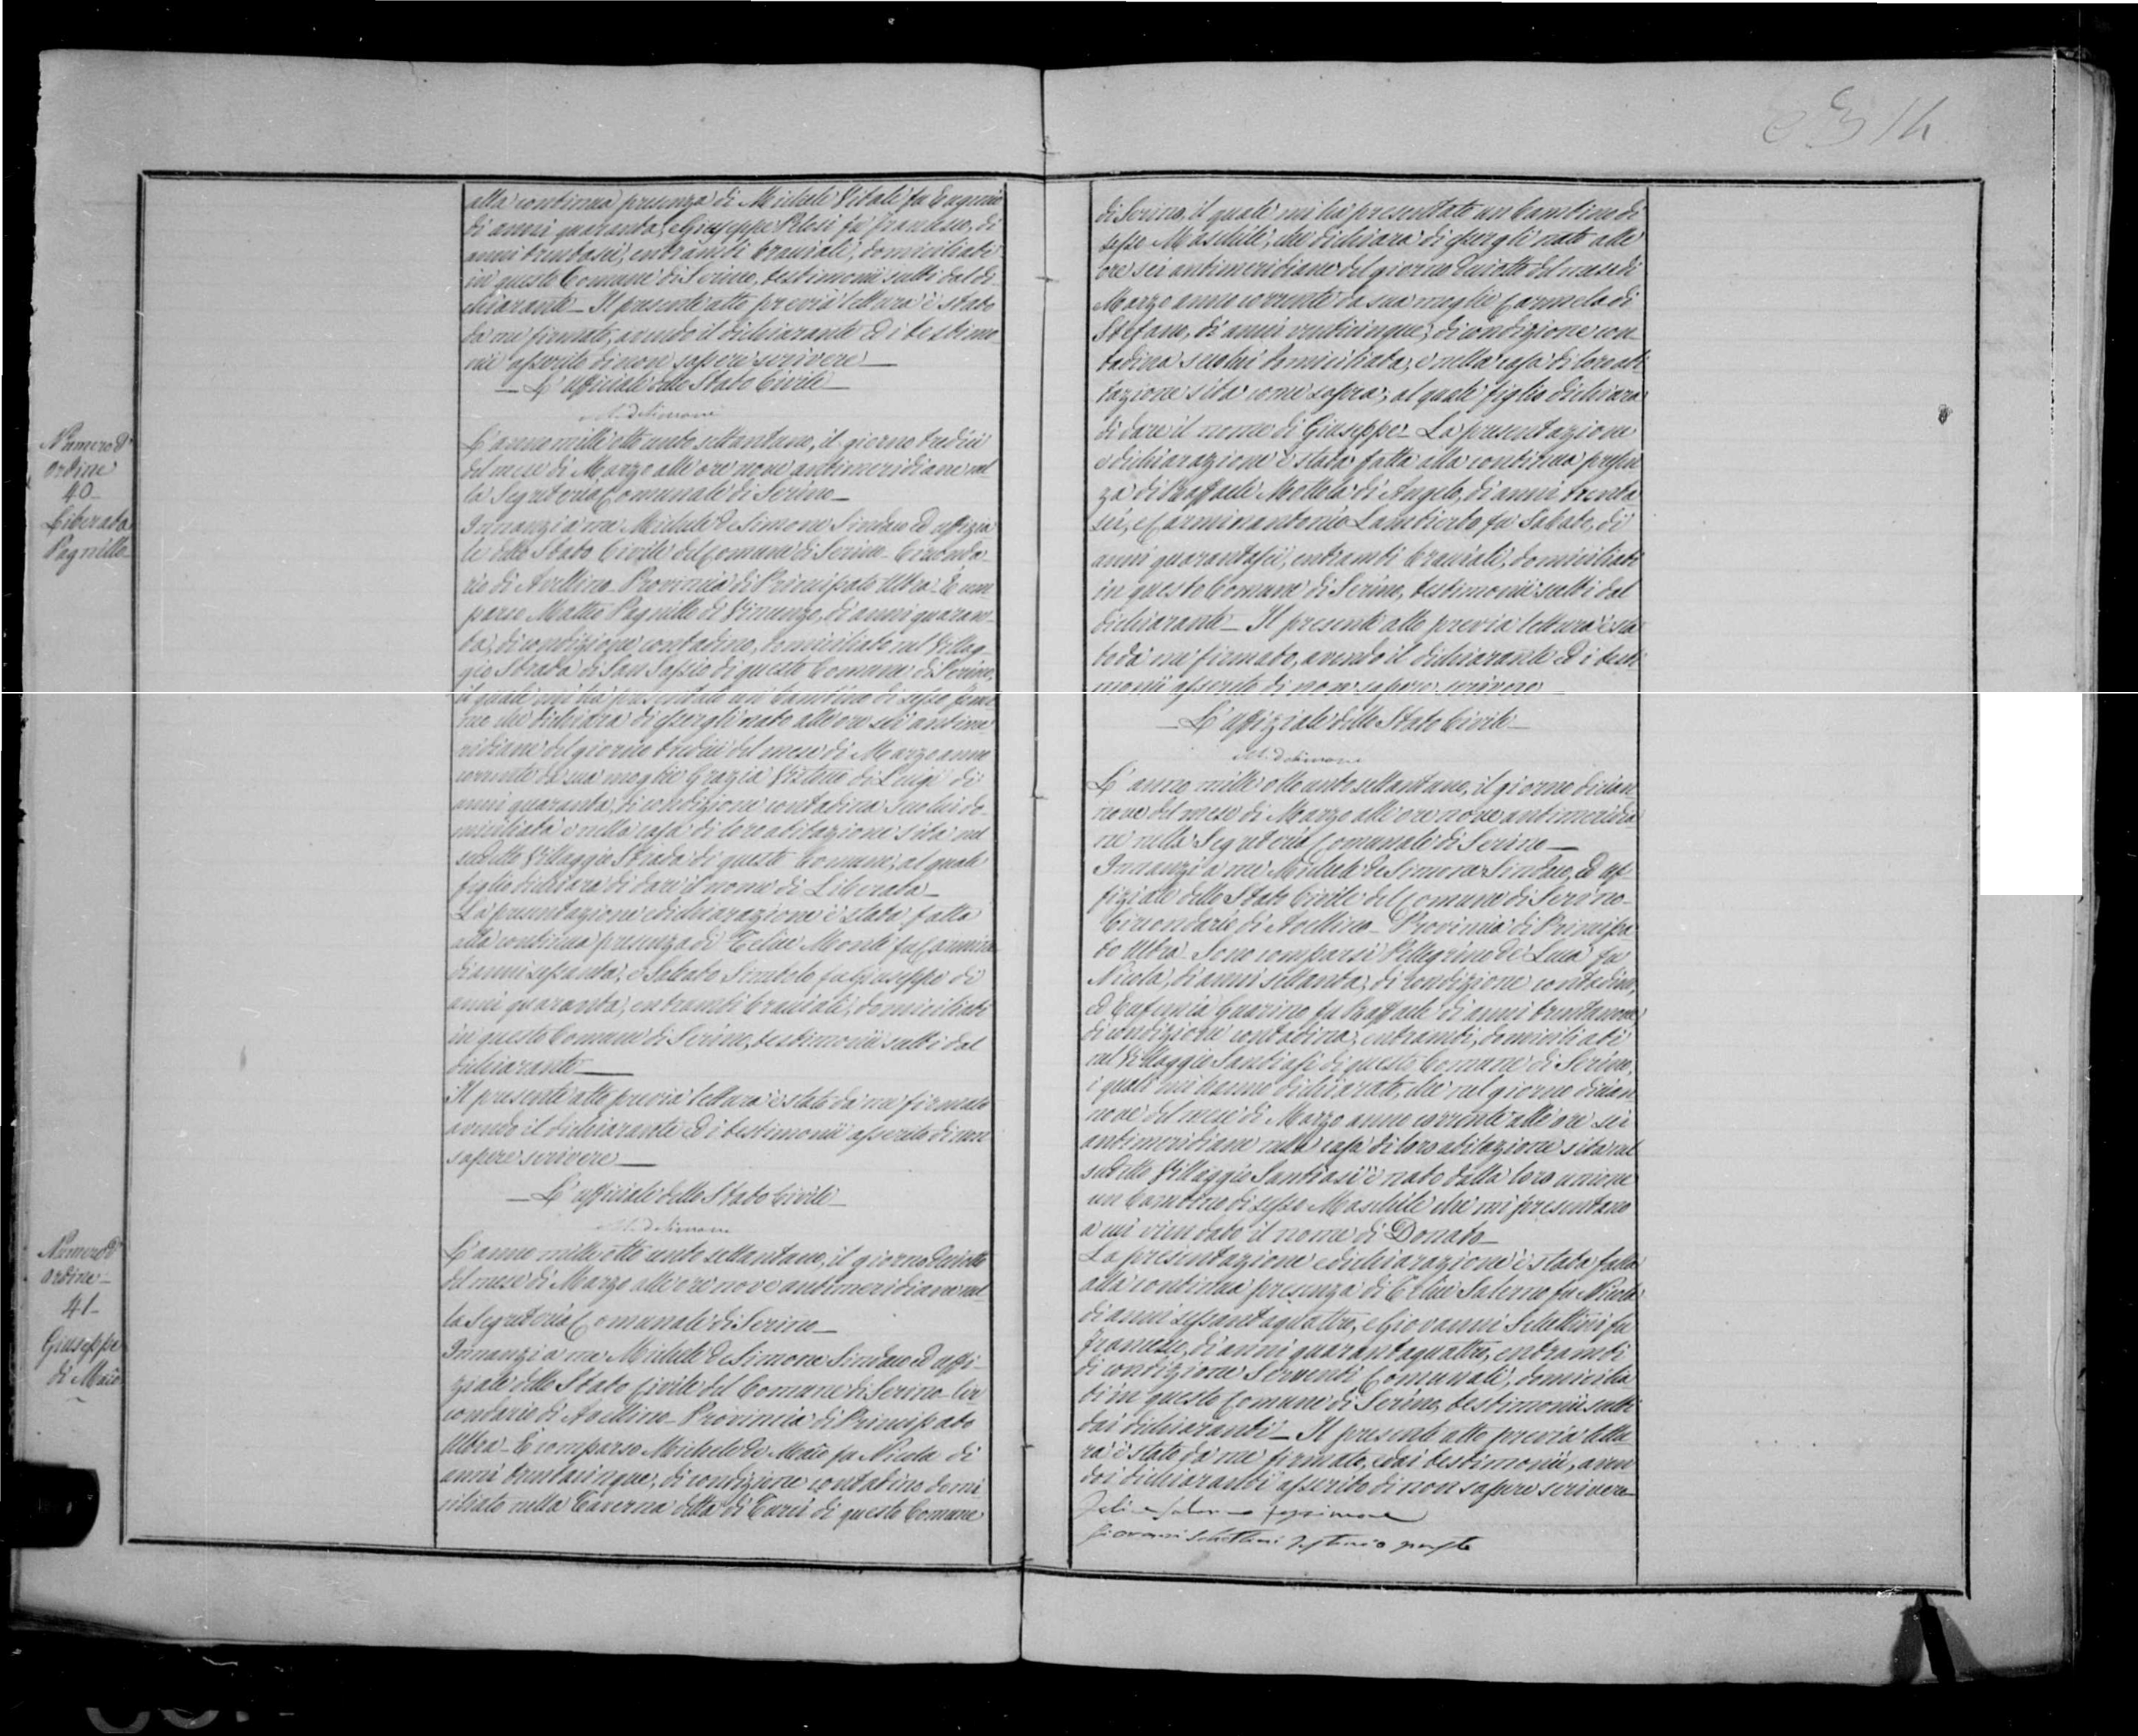 14
alla continua presenza di Michele Vitale fu Eugenio
di anni quaranta, e Giuseppe Pelosi fu Francesco, di
anni trentasei, entrambi braciali, domiciliati
in questo Comune di Serino, testimonii scelti dal di-
chiarante_ Il presente atto previa lettura è stato
da me firmato, avendo il dichiarante ed i testimo
nii asserito di non sapere scrivere_
_ L' Uffiziale dello Stato Civile_
M. de Simone
Numero d'
ordine
40_
Liberata
Pagnillo
L' anno mille otto cento settantuno, il giorno tredici
del mese di Marzo alle ore nove antimeridiane nel
la Segreteria Comunale di Serino_
Innanzi a me Michele de Simone Sindaco ed uffizia
le dello Stato Civile del Comune di Serino_ Circonda-
rio di Avellino_ Provincia di Principato Ultra_ È com
parso Matteo Pagnillo di Vincenzo, di anni quaran-
ta, di condizione contadino, domiciliato nel Villag-
gio Strada di San di questo Comune di Serino,
il quale mi ha presentato un bambino di sesso femi
neo che dichiara di essergli nato alle ore sei antime
ridiane del giorno tredici del mese di Marzo anno
corrente da sua moglie Grazia di Luigi di
anni quaranta, di condizione contadina seco lui do-
miciliata e nella casa di loro abitazione sita nel
sudetto Villaggio Strada di questo Comune; al quale
figlio dichiara di dare il nome di Liberata_
La presentazione e dichiarazione è stata fatta
alla continua presenza di Felice Monte fu Carmine
di anni sessanta, e Sabato fu Giuseppe di
anni quaranta, entrambi braciali, domiciliati
in questo Comune di Serino, testimonii scelti dal
dichiarante_
Il presente atto previa lettura è stato da me firmato
avendo il dichiarante ed i testimonii asserito di non
sapere scrivere_
_ L' uffiziale dello Stato Civile_
M. de Simone
Numero d'
ordine_
41_
Giuseppe
di Maio
L' anno mille otto cento settantuno, il giorno dieciotto
del mese di Marzo alle ore nove antimeridiane nel
la Segreteria Comunale di Serino_
Innanzi a me Michele de Simone Sindaco ed uffi-
ziale dello Stato Civile del Comune di Serino_ Cir
condario di Avellino_ Provincia di Principato
Ultra_ È comparso Michele de Maio fu Nicola di
anni trentacinque, di condizione contadino domi
ciliato nella Taverna detta di di questo Comune
di Serino, il quale mi ha presentato un bambino di
sesso Maschile, che dichiara di essergli nato alle
ore sei antimeridiane del giorno dieciotto del mese di
Marzo anno corrente da sua moglie Carmela di
Stefano, di anni venticinque, di condizione con-
tadina seco lui domiciliata, e nella casa di loro abi
tazione sita come sopra; al quale figlio dichiara
di dare il nome di Giuseppe_ La presentazione
e dichiarazione è stata fatta alla continua presen
za di Raffaele Mottola di Angelo, di anni trenta
sei, e Carminantonio Lambierto fu Sabato, di
anni quarantasei, entrambi braciali, domiciliati
in questo Comune di Serino, testimonii scelti dal
dichiarante_ Il presente atto previa lettura è sta
to da me firmato, avendo il dichiarante ed i testi
monii asserito di non sapere scrivere_
_ L' uffiziale dello Stato Civile_
M. de Simone
L' anno mille otto cento settantuno, il giorno dician
nove del mese di Marzo alle ore nove antimeridia
ne nella Segreteria Comunale di Serino_
Innanzi a me Michele de Simone Sindaco, ed uf-
fiziale dello Stato Civile del Comune di Serino_
Circondario di Avellino_ Provincia di Principa-
to Ultra_ Sono comparsi Pellegrino de Luca fu
Nicola, di anni settanta, di condizione contadino,
ed Eufemia Guarino fu Raffaele di anni trentanove
di condizione contadina, entrambi, domiciliati
nel Villaggio Santiasi di questo Comune di Serino,
i quali mi hanno dichiarato, che nel giorno dician
nove del mese di Marzo anno corrente alle ore sei
antimeridiane nella casa di loro abitazione sita nel
sudetto Villaggio Santiasi è nato dalla loro unione
un bambino di sesso Maschile che mi presentano
a cui vien dato il nome di Donato_
La presentazione e dichiarazione è stata fatta
alla continua presenza di Felice Salerno fu Nicola
di anni sessantaquattro, e Giovanni Schettini fu
Francesco, di anni quarantaquattro, entrambi
di condizione Serventi Comunali, domicilia
ti in questo Comune di Serino, testimonii scelti
dai dichiaranti_ Il presente atto previa lettu
ra è stato da me firmato, e dai testimonii, aven
do i dichiaranti asserito di non sapere scrivere_
Felice Salerno testimone
Giovanni Schettini